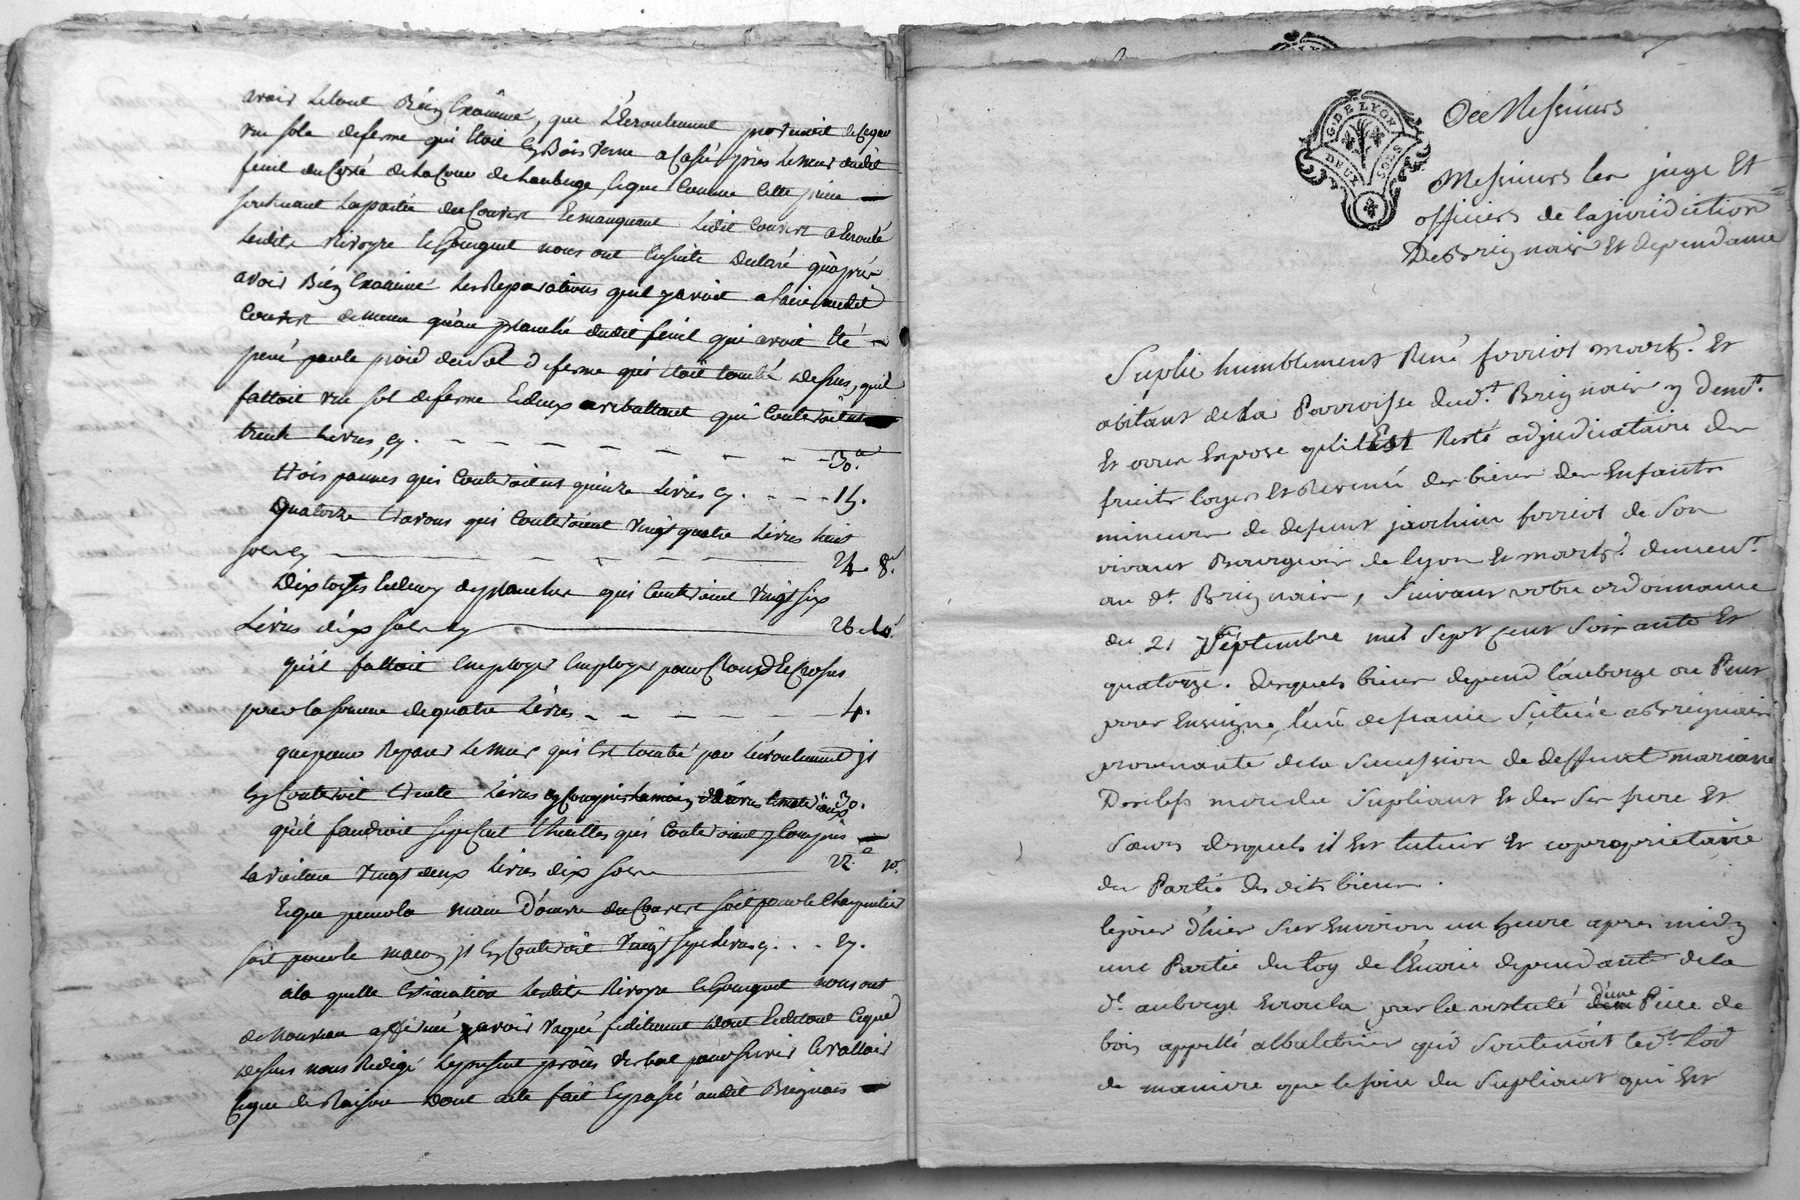 avoir letout Biéz Examiné, que L'Ecroulement provenoit de ceque
vne sole deferme qui Etoit Ez Bois Verne a Cassé près Lemur dudit
fenil du Costé de La Cour de Lauberge, Eque Comme Cette piece
soutenant Lapartie du Couvert Emanquant Ledit Couvert a Ecroulé
Lesdits Rivoyre Et Gourguet nous ont Ensuite Declaré qu'après
avoir Biéz Examiné Les Reparations quil yavoit afaire audit
Couvert demême qu'au planché dudit fenil qui avoit Eté
percé parle poid du Sol deferme qui Etoit tombé Dessus, quil
falloit vne sol deferme Edeux arbaltaut qui Couteroient
trente Livres cy. 30.
trois pannes qui Couteroient quinze Livres cy. 15.
quatorze travons qui Couteroient vingt quatre Livres huit
sols cy 24 8.
Dix toises Edemy deplancher qui Couteroient Vingt six
Livres dix sols cy 26 10.
qu'il falloit Employer Employer pour Cloux Et Crosses
pour la somme dequatre Livres 4.
quepour Reparer Lemur qui Est tombé par Lécroulement jl
Ez Couteroit trente Livres y Compris Lamaiz d'œuvre Ematériaux 30.
qu'il faudroit sept cent Thuilles qui Couteroient y Compris
Lavoiture vingt deux Livres dix sols 22. 10.
Eque pourla main D'œuvre du Couvert soit pour le Charpentier
soit pourle maçoz jl Ez Couteroit Vingt sept Livres cy. 27.
ala quelle Estimation Lesdits Rivoyre Et Gourguet nous ont
de Nouveau affirmé y avoir Vaqué fidelement Dont Edetout Ceque
Dessus nous Redigé Le present procès Verbal pour servir Evalloir
Ceque de Raison Dont acte fait Epassé audit Brignais
G. DE LYON
DEUX SOLS
A Messieurs
Messieurs les juge Et
officiers de la juridiction
De Brignais Et dependance
Suplie humblement René forriot march.d Et
abitant de la Parroisse dud.t Brignais y dem.t
Et vous Expose qu'il Est Resté adjudicataire des
fruits loyers Et Revenú des biens des Enfants
mineurs de defunt joachim forriot de Son
vivant Bourgeois de lyon Et march.d demeur.t
au d.t Brignais, Suivant votre ordonnance
du 21 7septembre mil Sept Cent Soixante Et
quatorze. desquels biens depend l'auberge ou Peut
pour Enseigne l'écú de france Scituée a Brignais
provenante de la Sucession de deffunct mariane
mere du Supliant Et de Ses frere Et
Sœurs desquels il Est tuteur Et copropriétaire
de Partie desdits biens.
lejour d'hier Sur Environ un heure apres midy
une Partie du toy de l'Ecurie dependante de la
d.t auberge Ecroula par la vestuté d'une Piece de
bois appellé albaletrier qui Soutenoit led.t toy
de maniere que lefoin du Supliant qui Est